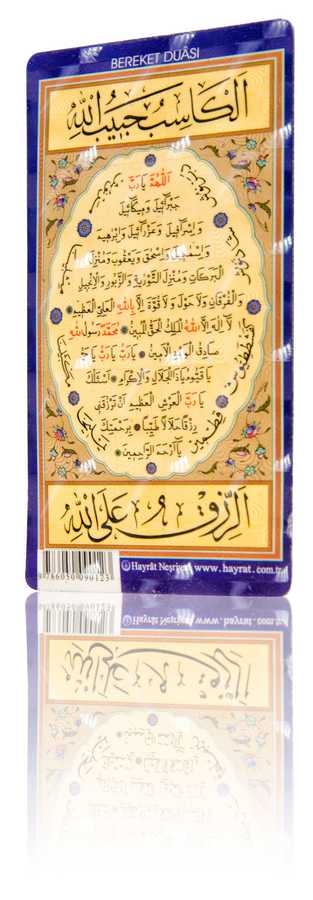 BEREKET DUÂSI
اَلْكَاسِبُ حَبِيبُ اللّٰهِ
اَللّٰهُمَّ يَا رَبَّ
جَبْرَائِيلَ وَمِيكَائِيلَ
وَاِسْرَافِيلَ وَعَزْرَائِيلَ وَاِبْرٰهِيمَ
وَاِسْمٰعِيلَ وَاِسْحٰقَ وَيَعْقُوبَ وَمُنْزِلَ
الْبَرَكَاتِ وَمُنْزِلَ التَّوْرٰيةِ وَالزَّبُورِ وَالْاِنْجِيلِ
وَالْفُرْقَانِ وَلَا حَوْلَ وَلَا قُوَّةَ اِلَّا بِاللّٰهِ الْعَلِيِّ الْعَظِيمِ
لَا اِلٰهَ اِلَّا اللّٰهُ الْمَلِكُ الْحَقُّ الْمُبِينُ مُحَمَّدٌ رَسُولُ اللّٰهِ
صَادِقُ الْوَعْدِ الْاَمِينُ يَا رَبِّ يَا رَبِّ يَا حَيُّ
يَا قَيُّومُ يَا ذَا الْجَلَالِ وَالْاِكْرَامِ اَسْئَلُكَ
يَا رَبَّ الْعَرْشِ الْعَظِيمِ اَنْ تَرْزُقَنِي
رِزْقًا حَلَالًا طَيِّبًا بِرَحْمَتِكَ
يَا اَرْحَمَ الرَّاحِمِينَ
اَلرِّزْقُ عَلَى اللّٰهِ
9786050090123
Hayrât Neşriyat www.hayrat.com.tr